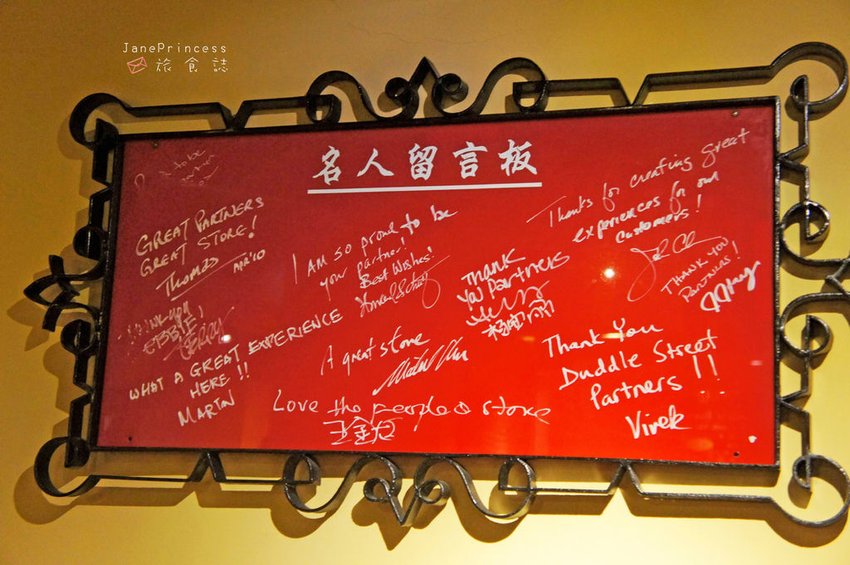 JanePrincess
旅食誌
名人留言板
to be
GREAT PARTNERS
GREAT STORE!
Thomas APR'10
I AM SO proud to be
your partner!
Best Wishes!
Howard Schultz
THANK
YOU Partners
Thanks for creating great
experiences for our
customers!
THANK YOU
PARTNERS!
THANK YOU
GERRY
WHAT A GREAT EXPERIENCE
HERE!!
MARTIN
A great store
Love the people & store
Thank You
Duddle Street
Partners!!
Vivek